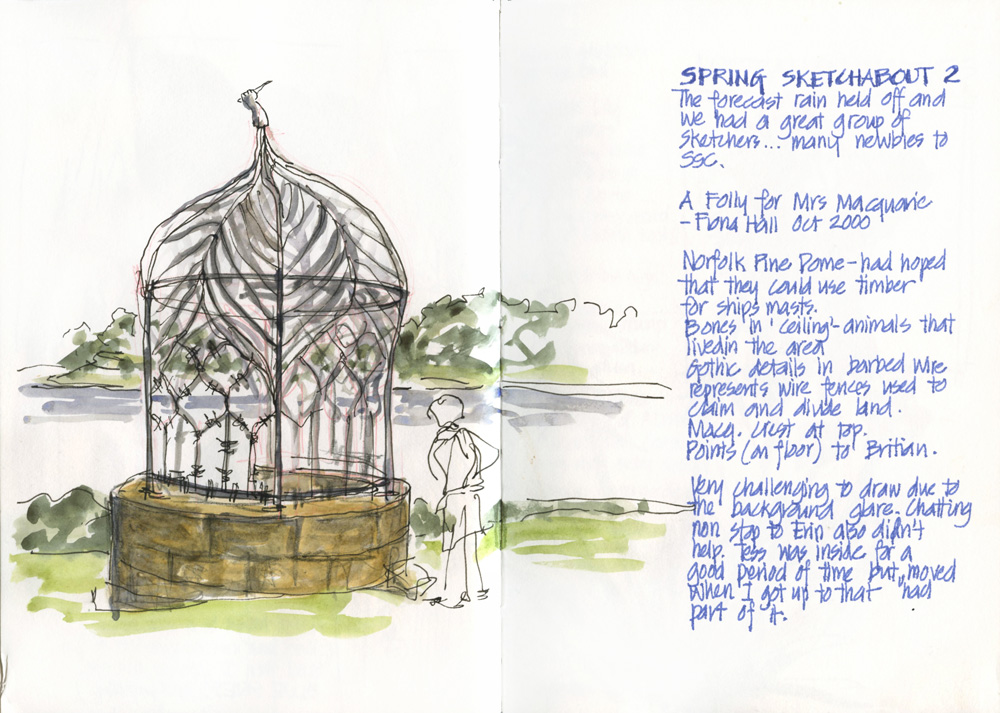 SPRING SKETCHABOUT 2
The forecast rain held off and
we had a great group of
sketchers... many newbies to
SSC.
A Folly for Mrs Macquarie
- Fiona Hall Oct 2000
Norfolk Pine Dome - had hoped
that they could use timber
for ships masts.
Bones in 'ceiling' - animals that
livedin the area
Gothic details in barbed wire
represents wire fences used to
claim and divide land.
Macq. Crest at top.
Points (on floor) to Britian.
Very challenging to draw due to
the background glare. Chatting
non stop to Erin also didn't
help. Tess was inside for a
good period of time but moved
when I got up to that "had
part of it.